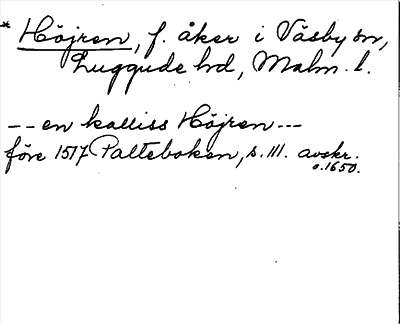 * Höjren, f. åker i Väsby sn,
Luggude hd, Malm. l.
-- en kalliss Höjren ---
före 1517 Palteboken, s. 111. avskr.
o. 1650.